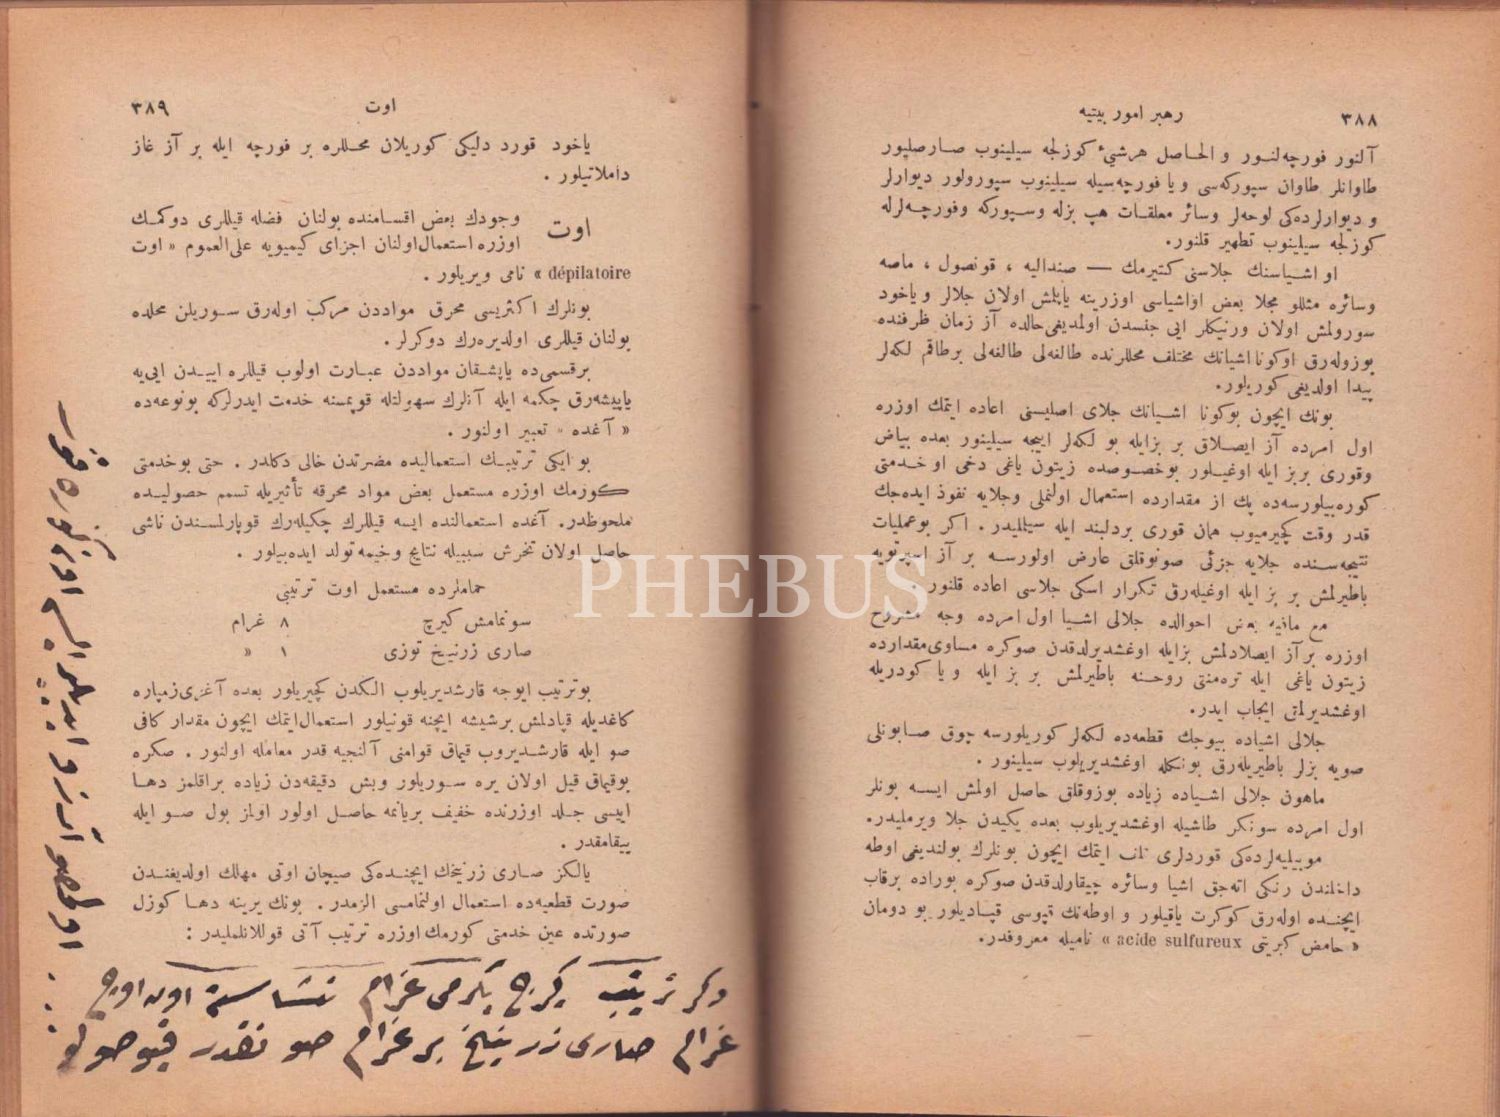 ٣٨٨
رهبر امور بيتيه
آلنور فورچه‌لنور و الحاصل هرشیء كوزلجه سيلينوب صارصلپور
طاوانلر طاوان سپوركه‌سی و يا فورچه‌سيله سيلينوب سپورولور ديوارلر
و ديوارلرده‌كی لوحه‌لر وسائر معلقات هپ بزله وسپوركه وفورچه‌لرله
كوزلجه سيلينوب تطهير قلنور.
او اشياسنك جلاسنی كتيرمك — صنداليه ، قونصول ، ماصه
وسائره مثللو مجلا بعض اواشياسی اوزرينه ياپلمش اولان جلالر وياخود
سورولمش اولان ورنيكلر ايی جنسدن اولمديغی حالده آز زمان ظرفنده
بوزوله‌رق اوكونا اشيانك مختلف محللرنده طالغه‌لی طالغه‌لی برطاقم لكه‌لر
پيدا اولديغی كوريلور.
بونك ايچون بوكونا اشيانك جلای اصليسنی اعاده ايتمك اوزره
اول امرده آز ايصلاق بر بزايله بو لكه‌لر اييجه سيلينور بعده بياض
وقوری بربز ايله اوغيلور بوخصوصده زيتون ياغی دخی او خدمتی
كوره‌بيلورسه‌ده پك از مقدارده استعمال اولنملی وجلايه نفوذ ايده‌جك
قدر وقت كچيرميوب همان قوری بردلبند ايله سيلمليدر . اكر بوعمليات
نتيجه‌سنده جلايه جزئی صونوقلق عارض اولورسه بر آز اسپرتويه
باطيرلمش بر بز ايله اوغيله‌رق تكرار اسكی جلاسی اعاده قلنور .
مع مافيه بعض احوالده جلالی اشيا اول امرده وجه مشروح
اوزره بر آز ايصلادلمش بزايله اوغشديرلدقدن صوكره مساوی مقدارده
زيتون ياغی ايله تره‌منتی روحنه باطيرلمش بر بز ايله و يا كودريله
اوغشديرلمق ايجاب ايدر.
جلالی اشياده بيوجك قطعه‌ده لكه‌لر كوريلورسه چوق صابونلی
صويه بزلر باطيريله‌رق بونكله اوغشديريلوب سيلينور .
ماهون جلالی اشياده زياده بوزوقلق حاصل اولمش ايسه بونلر
اول امرده سونكر طاشيله اوغشديريلوب بعده يكيدن جلا ويرمليدر.
موبيليه‌لرده‌كی قوردلری تلف ايتمك ايچون بونلرك بولنديغی اوطه
داخلندن رنكی آته‌جق اشيا وسائره چيقارلدقدن صوكره بوراده برقاب
ايچنده اوله‌رق كوكرت ياقيلور و اوطه‌نك قپوسی قپاديلور بو دومان
« حامض كبريتی acide sulfureux » ناميله معروفدر.
٣٨٩
اوت
ياخود قورد دليكی كوريلان محللره بر فورچه ايله بر آز غاز
داملاتيلور .
اوت
وجودك بعض اقسامنده بولنان فضله قيللری دوكمك
اوزره استعمال اولنان اجزای كيميويه علی‌العموم « اوت
dépilatoire » نامی ويريلور .
بونلرك اكثريسی محرق مواددن مركب اوله‌رق سوريلن محلده
بولنان قيللری اولديره‌رك دوكرلر .
برقسمی‌ده ياپشقان مواددن عبارت اولوب قيللره اييدن ايی‌يه
ياپيشه‌رق چكمه ايله آنلرك سهولتله قوپمسنه خدمت ايدرلركه بونوعه‌ده
« آغده » تعبير اولنور .
بو ايكی ترتيبك استعماليده مضرتدن خالی دكلدر . حتی بوخدمتی
كورمك اوزره مستعمل بعض مواد محرقه تأثيريله تسمم حصولیده
ملحوظدر. آغده استعمالنده ايسه قيللرك چكيله‌رك قوپارلمسندن ناشی
حاصل اولان تخرش سببيله نتايج وخيمه تولد ايده‌بيلور .
حماملرده مستعمل اوت ترتيبی
سونمامش كيرچ ٨ غرام
صاری زرنيخ توزی ١ «
بوترتيب ايوجه قارشديريلوب الكدن كچيريلور بعده آغزی زمپاره
كاغديله قپادلمش برشيشه ايچنه قونيلور استعمال ايتمك ايچون مقدار كافی
صو ايله قارشديروب قيماق قوامنی آلنجيه قدر معامله اولنور . صكره
بوقيماق قيل اولان يره سوريلور وبش دقيقه‌دن زياده براقلمز دها
اييسی جلد اوزرنده خفيف بريانمه حاصل اولور اولمز بول صو ايله
ييقامقدر .
يالكز صاری زرنيخك ايچنده‌كی صيچان اوتی مهلك اولديغندن
صورت قطعيه‌ده استعمال اولنمامسی الزمدر . بونك يرينه دها كوزل
صورتده عين خدمتی كورمك اوزره ترتيب آتی قوللانلمليدر :
دكر ترتيب كيرچ يكرمی غرام نشاسته اون اوچ
غرام صاری زرنيخ بر غرام صو نقدر
PHEBUS